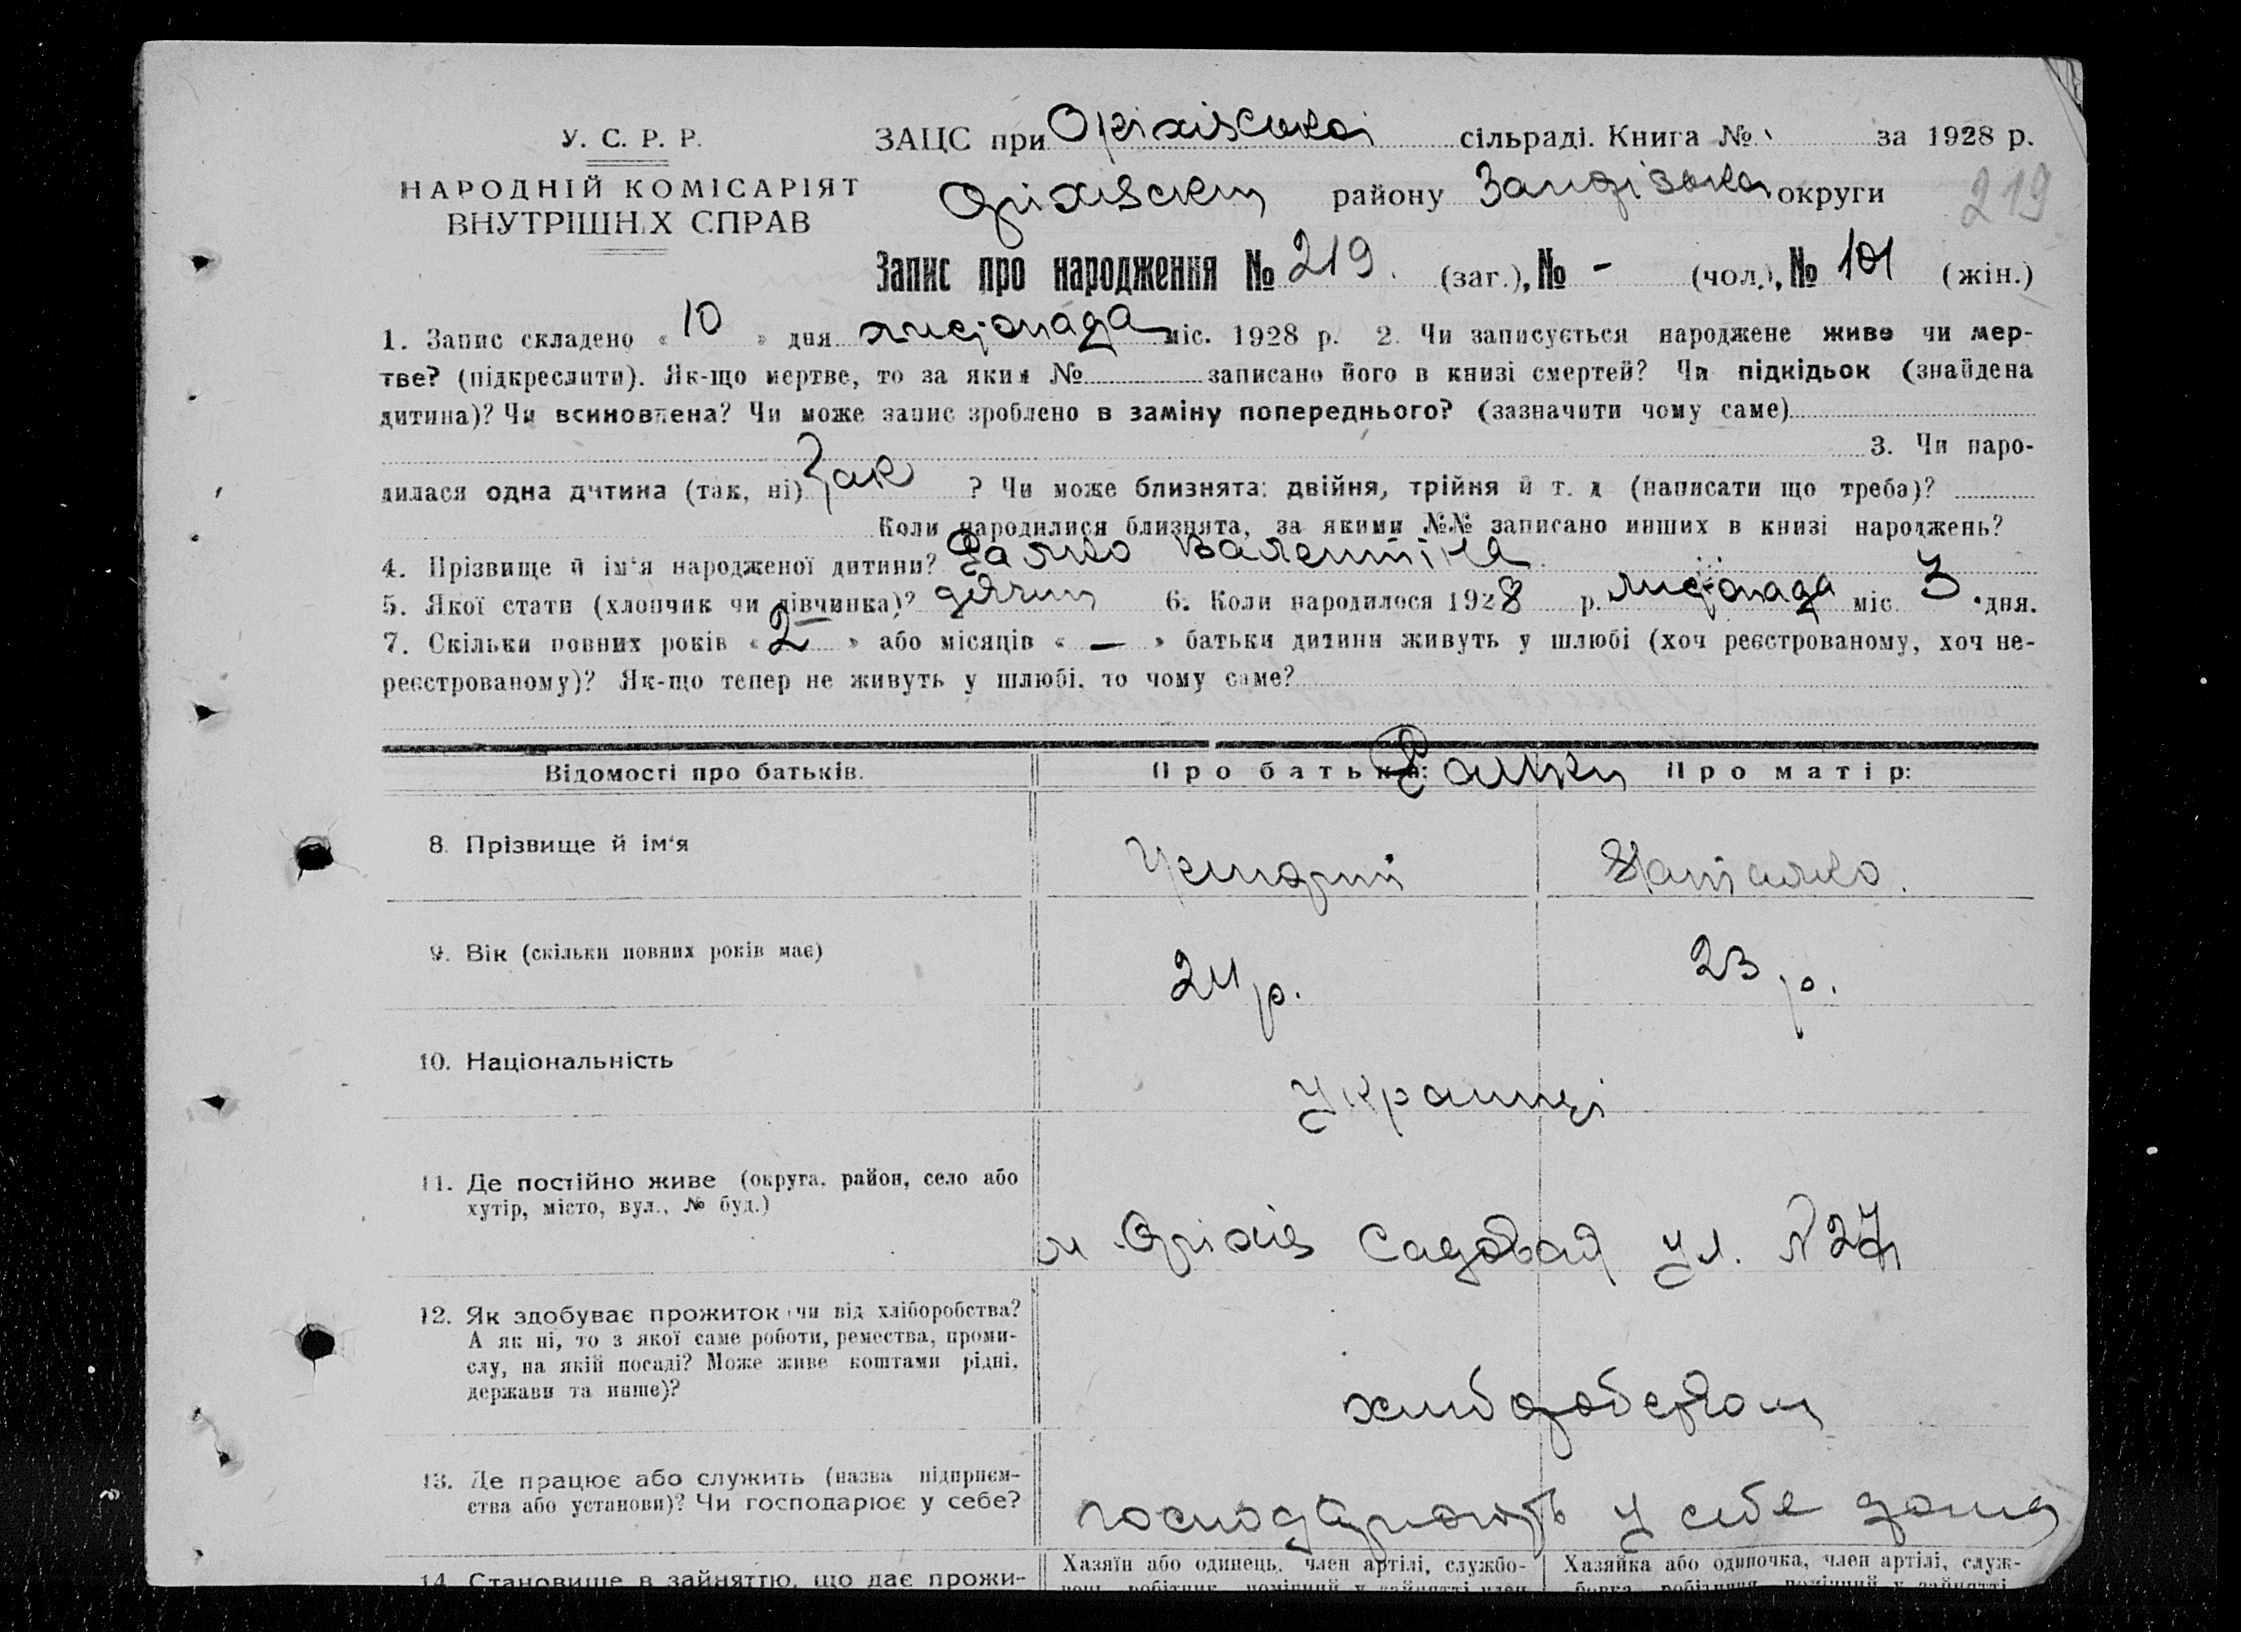 У. С. Р. Р.
НАРОДНІЙ КОМІСАРІЯТ
ВНУТРІШНІХ СПРАВ
ЗАЦС при Оріхівської сільраді. Книга № за 1928 р.
Оріхівску району округи
219
Запис про народження № 219. (заг.), № - (чол.), № 101 (жін.)
1. Запис складено « 10 » дня листопада міс. 1928 р. 2. Чи записується народжене живе чи мер-
тве? (підкреслити). Як-що мертве, то за яким № записано його в книзі смертей? Чи підкідьок (знайдена
дитина)? Чи всиновлена? Чи може запис зроблено в заміну попереднього? (зазначити чому саме)
3. Чи наро-
дилася одна дитина (так, ні) Так ? Чи може близнята: двійня, трійня й т. д (написати що треба)?
Коли народилися близнята, за якими №№ записано инших в книзі народжень?
4. Прізвище й ім'я народженої дитини? Валентіна
5. Якої стати (хлопчик чи дівчинка)? 6. Коли народилося 1928 р. листопада міс 3 дня.
7. Скільки повних років « 2 » або місяців « — » батьки дитини живуть у шлюбі (хоч реєстрованому, хоч не-
реєстрованому)? Як-що тепер не живуть у шлюбі, то чому саме?
Відомості про батьків. Про батька: Про матір:
8. Прізвище й ім'я
9. Вік (скільки повних років має) 24 р. 23 р.
10. Національність Украинці
11. Де постійно живе (округа, район, село або
хутір, місто, вул., № буд.)
м Оріхів Садовая ул. № 27
12. Як здобуває прожиток чи від хліборобства?
А як ні, то з якої саме роботи, ремества, проми-
слу, на якій посаді? Може живе коштами рідні,
держави та инше)?
хлиборобством
13. Де працює або служить (назва підприєм-
ства або установи)? Чи господарює у себе?
господарюють у себе дома
14. Становище в зайняттю, що дає прожи-
Хазяїн або одинець, член артілі, службо-
Хазяйка або одиночка, член артілі, служ-